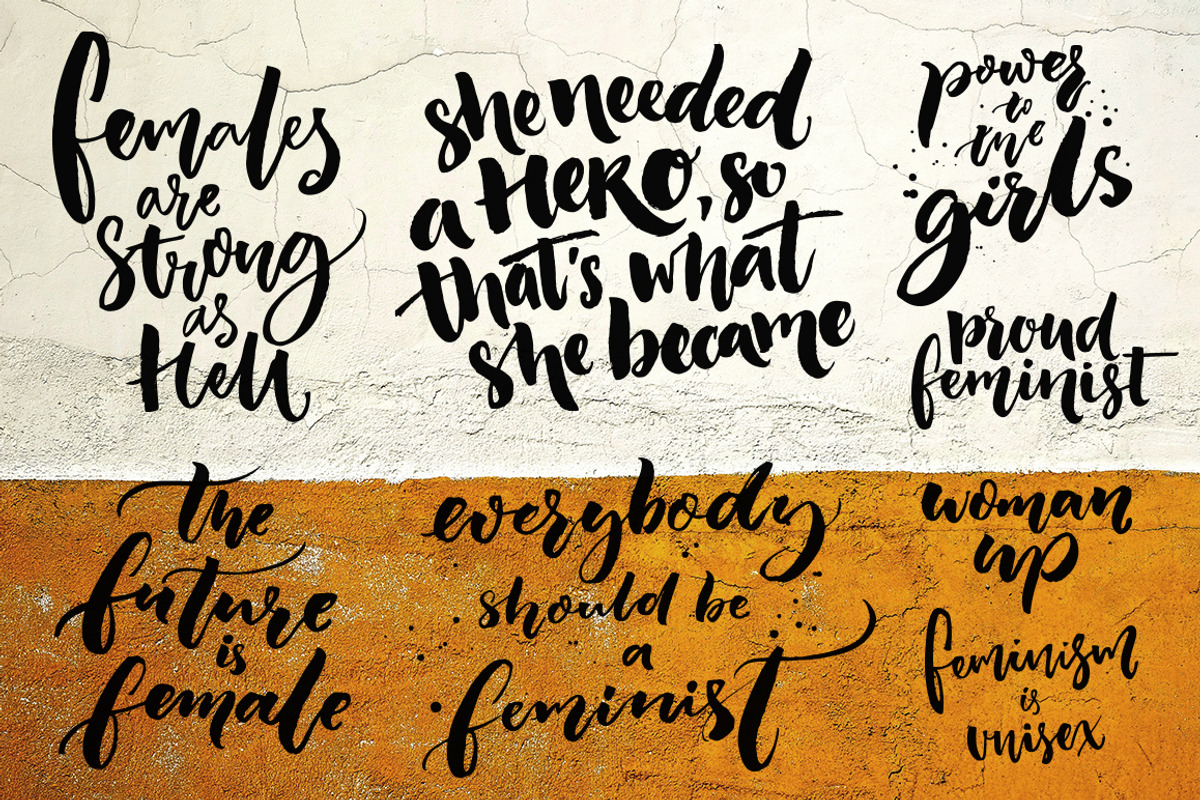 females
are
strong
as
Hell
she needed
a HeRO, so
that's what
she became
power
to
the
girls
proud
feminist
the
future
is
female
everybody
should be
a
feminist
woman
up
feminism
is
unisex